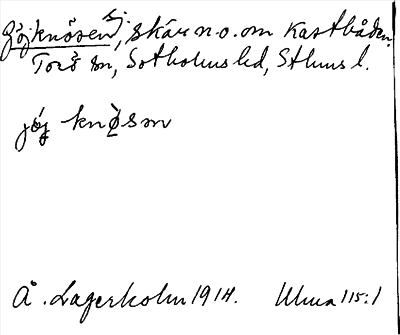 Göjknösen, skär n.o. om Kastbåden.
Torö sn, Sotholms hd, Sthms l.
jöj knøsm
Å. Lagerholm 1914. Uhma 115:1